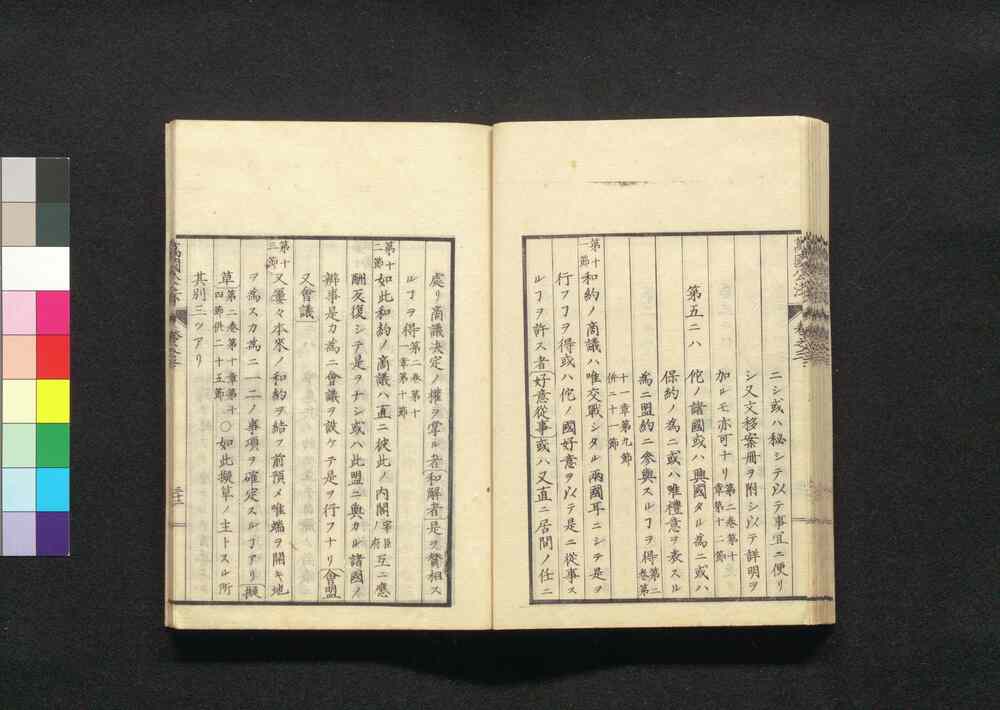 ニシ或ハ秘シテ以テ事宜ニ便リ
シ又文移案冊ヲ附シ以テ詳明ヲ
加ルモ亦可ナリ第二卷第十章第十二節
第五ニハ
佗ノ諸國或ハ與國タル為ニ或ハ
保約ノ為ニ或ハ唯禮意ヲ表スル
為ニ盟約ニ參與スルヿヲ得第二卷第二
十一章第九節併二十一節
第十一節和約ノ商議ハ唯交戰シタル兩國耳ニシテ是ヲ
行フヿヲ得或ハ佗ノ國好意ヲ以テ是ニ從事ス
ルヿヲ許ス者好意從事或ハ又直ニ居間ノ任ニ
處リ商議決定ノ權ヲ掌ル者和解者是ヲ賛相ス
ルヿヲ得第二卷第十一章第十節
第十二節如此和約ノ商議ハ直ニ彼此ノ内閣宰臣ノ府互ニ應
酬反復シテ是ヲナシ或ハ此盟ニ與カル諸國ノ
辨事是カ為ニ會議ヲ設ケテ是ヲ行フナリ會盟
又會議
第十三節又屢々本來ノ和約ヲ結フ前預メ唯端ヲ開キ地
ヲ為スカ為ニ一二ノ事項ヲ確定スルヿアリ擬
草第二卷第十章第十四節供二十五節○如此擬草ノ主トスル所
其別三ツアリ